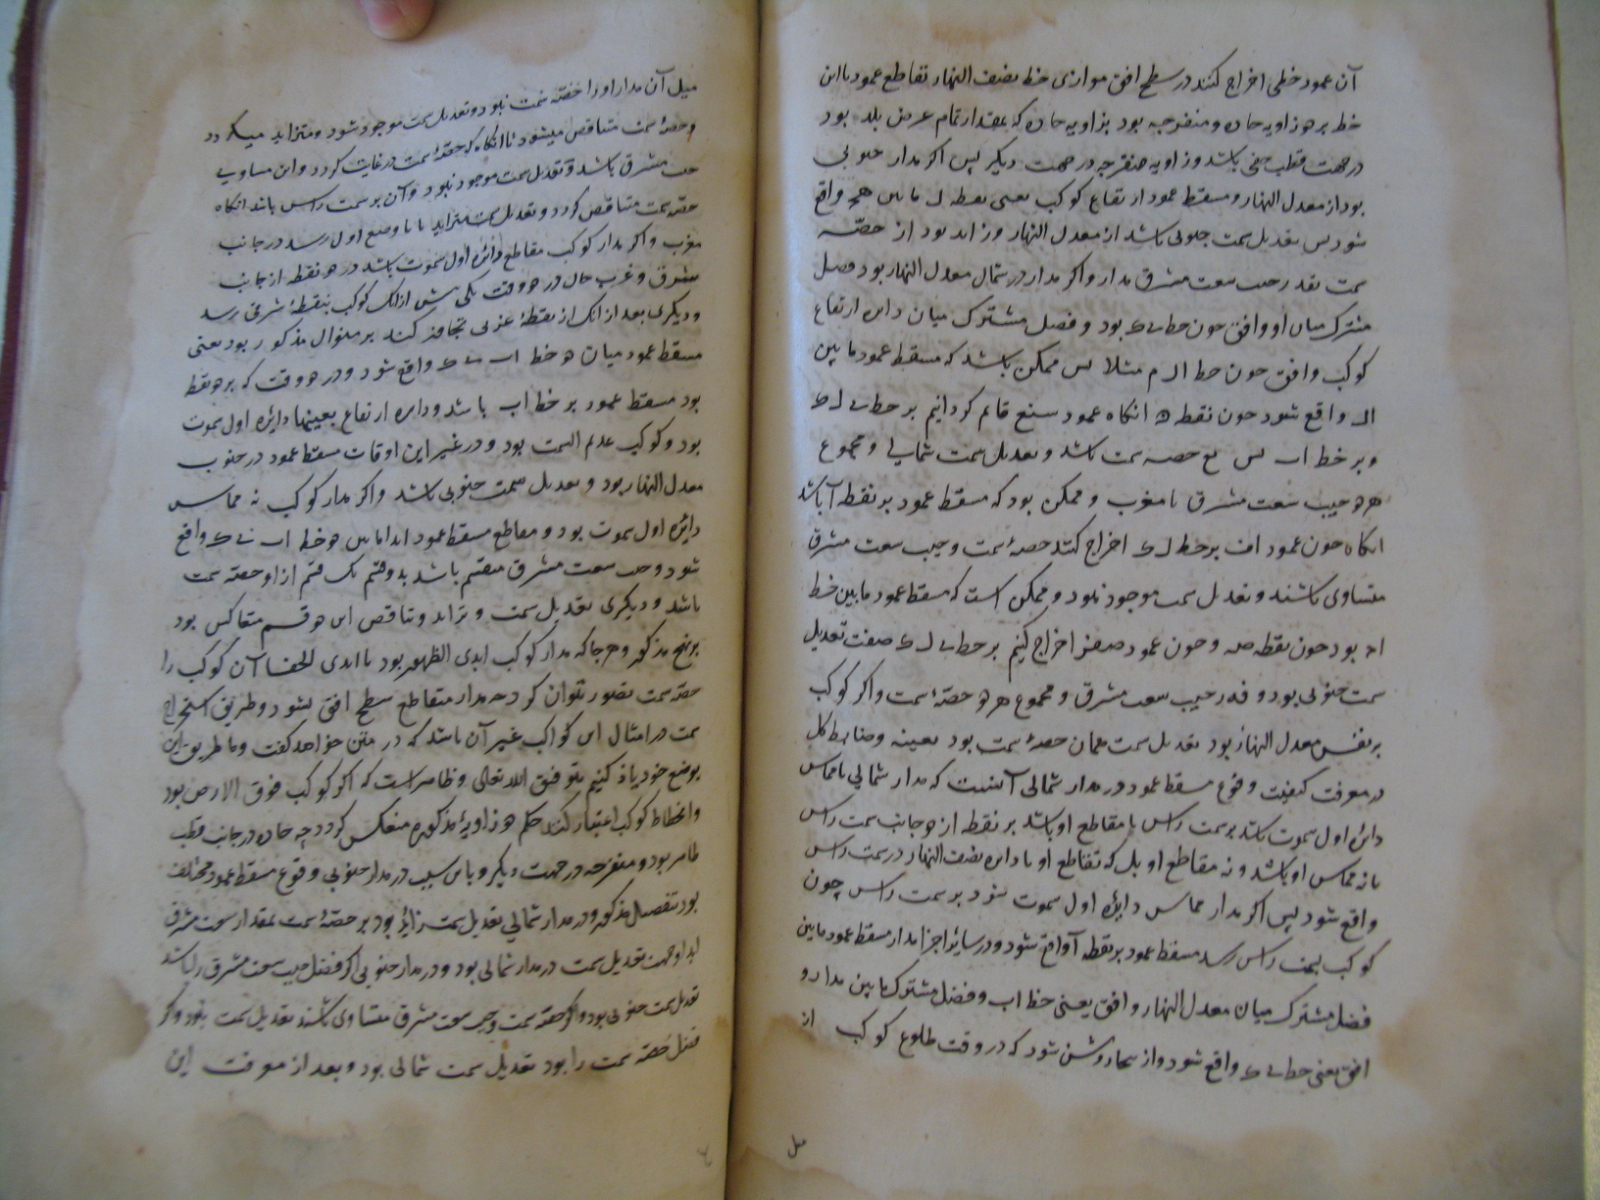 آن عمود خطی اخراج کنند در سطح افق موازی خط نصف النهار تقاطع عمود با این
خط بر دو زاویه حاده و منفرجه بود بزاویه حاده که بمقدار تمام عرض بلد بود
در جهت قطب خفی باشد و زاویه منفرجه در جهت دیگر پس اگر مدار جنوبی
بود از معدل النهار و مسقط عمود ارتفاع کوکب یعنی نقطه ل مابین واقع
شود پس تعدیل سمت جنوبی باشد از معدل النهار و زاید بود از حصّه
سمت بقدر جیب سعت مشرق مدار و اگر مدار در شمال معدل النهار بود فصل
مشترک میان او و افق چون خط بود و فصل مشترک میان دایره ارتفاع
کوکب و افق چون خط ا ل م مثلا پس ممکن باشد که مسقط عمود مابین
واقع شود چون نقطه ه آنکاه عمود سنع قائم کردانیم بر خط
و بر خط اب پس حصه سمت باشد و تعدیل سمت شمالی و مجموع
هر دو جیب سعت مشرق یا مغرب و ممکن بود که مسقط عمود بر نقطه آ باشد
آنکاه چون عمود اف بر خط اخراج کنند حصهٔ سمت و جیب سعت مشرق
متساوی باشند و تعدیل سمت موجود نبود و ممکن است که مسقط عمود مابین خط
بود چون نقطه صه و چون عمود اخراج کنیم بر خط تعدیل
سمت جنوبی بود و جیب سعت مشرق و مجموع هر دو حصّهٔ سمت و اگر کوکب
بر نفس معدل النهار بود تعدیل سمت همان حصهٔ سمت بود بعینه و ضابط کل
در معرفت کیفیت وقوع مسقط عمود در مدار شمالی آنست که مدار شمالی یا مماس
دائره اول سموت باشد بر سمت راس یا مقاطع او باشد بر نقطه از دو جانب سمت راس
یا نه مماس او باشد و نه مقاطع او بل که تقاطع او با دایره نصف النهار در سمت راس
واقع شود پس اگر مدار مماس دایره اول سموت بود بر سمت راس چون
کوکب بسمت راس رسد مسقط عمود بر نقطه آ واقع شود و در سایر اجزا مدار مسقط عمود مابین
فصل مشترک میان معدل النهار و افق یعنی خط اب و فصل مشترک مابین مدار و
افق یعنی خط واقع شود و از اینجا روشن شود که در وقت طلوع کوکب از
میل
میل آن مدار او را حصّه سمت نبود و تعدیل سمت موجود شود و متزاید میکردد
و حصهٔ سمت متناقص میشود تا آنکاه که حصّهٔ سمت در غایت کردد و این مساوی
جیب مشرق باشد و تعدیل سمت موجود نبود و آن بر سمت راس باشد آنکاه
حصّه سمت متناقص کردد و تعدیل سمت متزاید تا با وضع اول رسد در جانب
مغرب و اگر مدار کوکب مقاطع دائره اول سموت باشد در دو نقطه از جانب
مشرق و غرب حال در دو وقت یکی پیش از آنک کوکب بنقطهٔ شرقی رسد
و دیکری بعد از آنک از نقطهٔ غربی تجاوز کند بر منوال مذکور بود یعنی
مسقط عمود میان دو خط اب واقع شود و در دو وقت که بر دو نقط
بود مسقط عمود بر خط اب باشد و دایره ارتفاع بعینها دایره اول سموت
بود و کوکب عدیم السمت بود و در غیر این اوقات مسقط عمود در جنوب
معدل النهار بود و تعدیل سمت جنوبی باشد و اگر مدار کوکب نه مماس
دائره اول سموت بود و مقاطع مسقط عمود ابدا مابین دو خط اب واقع
شود و جیب سعت مشرق منقسم باشد بدو قسم یک قسم از او حصّه سمت
باشد و دیکری تعدیل سمت و تزاید و تناقص این دو قسم متعاکس بود
بر نهج مذکور و هر جا که مدار کوکب ابدی الظهور بود یا ابدی الخفا آن کوکب را
حصّه سمت تصور نتوان کرد چه مدار متقاطع سطح افق نشود و طریق استخراج
سمت در امثال این کواکب غیر آن باشد که در متن خواهد کفت و ما طریق این
بوضع خود یاد کنیم بتوفیق الله تعالی و ظاهر است که اگر کوکب فوق الارض بود
و انحطاط کوکب اعتبار کنند حکم دو زاویهٔ مذکوره منعکس کردد چه حاده در جانب قطب
ظاهر بود و منفرجه در جهت دیگر و باین سبب در مدار جنوبی وقوع مسقط عمود مختلف
بود بتفصیل مذکور و در مدار شمالی تعدیل سمت زاید بود بر حصّهٔ سمت بمقدار سعت مشرق
ابدا و جهت تعدیل سمت در مدار شمالی بود و در مدار جنوبی اگر فضل جیب سعت مشرق را باشد
تعدیل سمت جنوبی بود و اگر حصّه سمت و جیب سعت مشرق متساوی باشند تعدیل سمت نبود و اگر
فضل حصّه سمت را بود تعدیل سمت شمالی بود و بعد از معرفت این